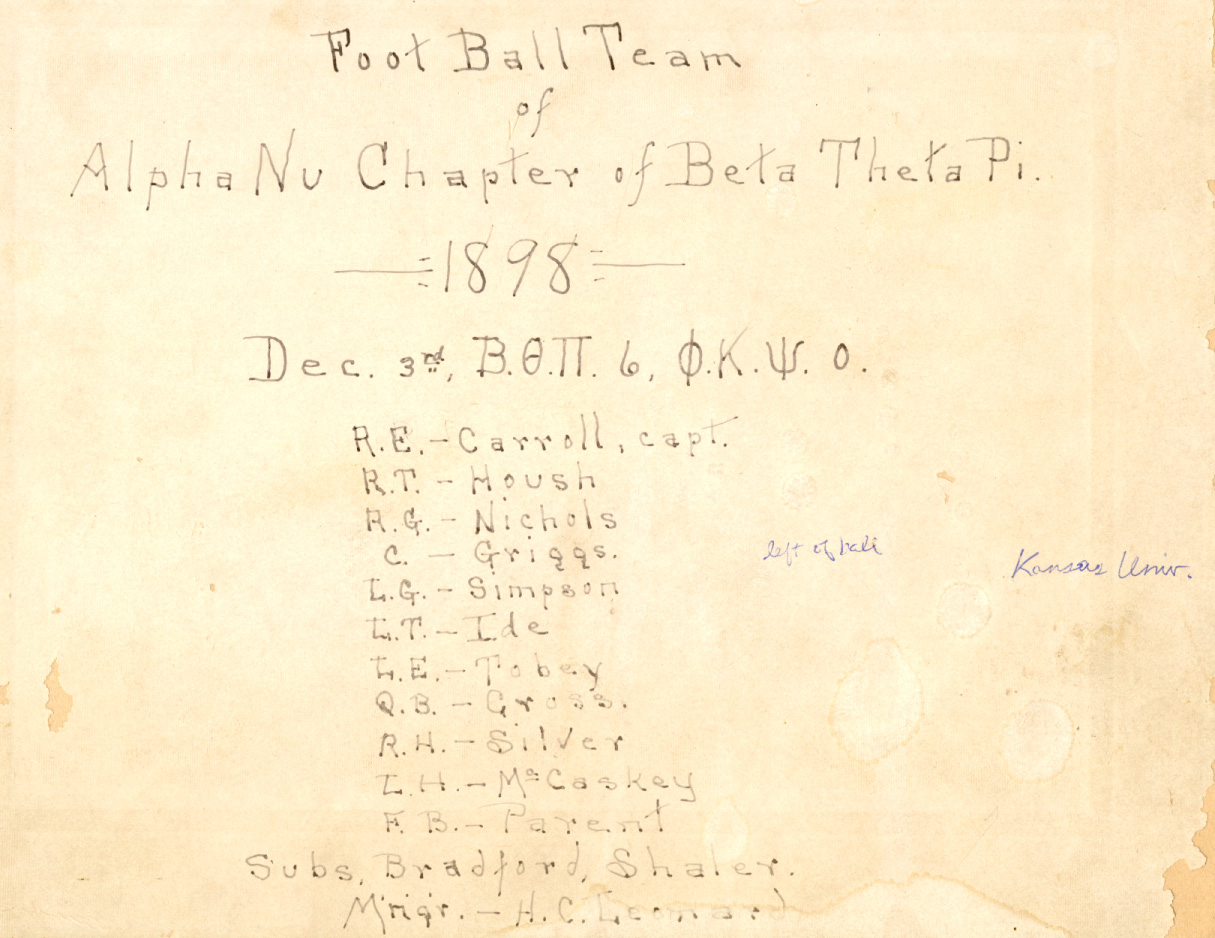 Foot Ball Team
of
Alpha Nu Chapter of Beta Theta Pi.
1898
Dec. 3rd, Β.Θ.Π. 6, Φ.Κ.Ψ. 0.
R.E. - Carroll, capt.
R.T. - Housh
R.G. - Nichols
C. - Griggs.
L.G. - Simpson
L.T. - Ide
L.E. - Tobey
Q.B. - Gross.
R.H. - Silver
L.H. - McCaskey
F.B. - Parent
Subs, Bradford, Shaler.
M'n'g'r. - H.C. Leonard
left of ball
Kansas Univ.